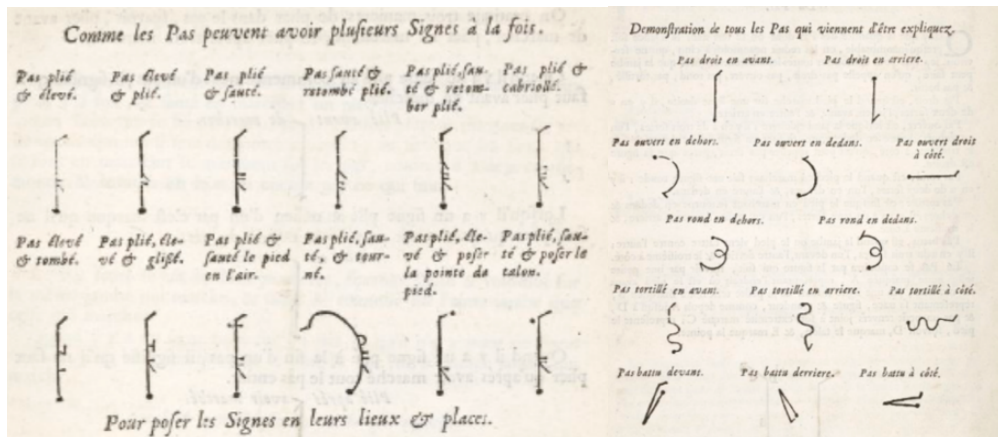 Comme les Pas peuvent avoir plusieurs Signes à la fois.
Pas plié
& élevé.
Pas élevé
& plié.
Pas plié
& sauté.
Pas sauté &
retombé plié.
Pas plié, sau-
té & retom-
ber plié.
Pas plié &
cabriollé.
Pas élevé
& tombé.
Pas plié, éle-
vé & glissé.
Pas plié &
sauté le pied
en l'air.
Pas plié, sau-
té, & tour-
né.
Pas plié, éle-
vé & poser
la pointe du
pied.
Pas plié, sau-
té & poser le
talon.
Pour poser les Signes en leurs lieux & places.
Demonstration de tous les Pas qui viennent d'être expliquez.
Pas droit en avant.
Pas droit en arriere.
Pas ouvert en dehors.
Pas ouvert en dedans.
Pas ouvert droit
à côté.
Pas rond en dehors.
Pas rond en dedans.
Pas tortillé en avant.
Pas tortillé en arriere.
Pas tortillé à côté.
Pas battu devant.
Pas battu derriere.
Pas battu à côté.